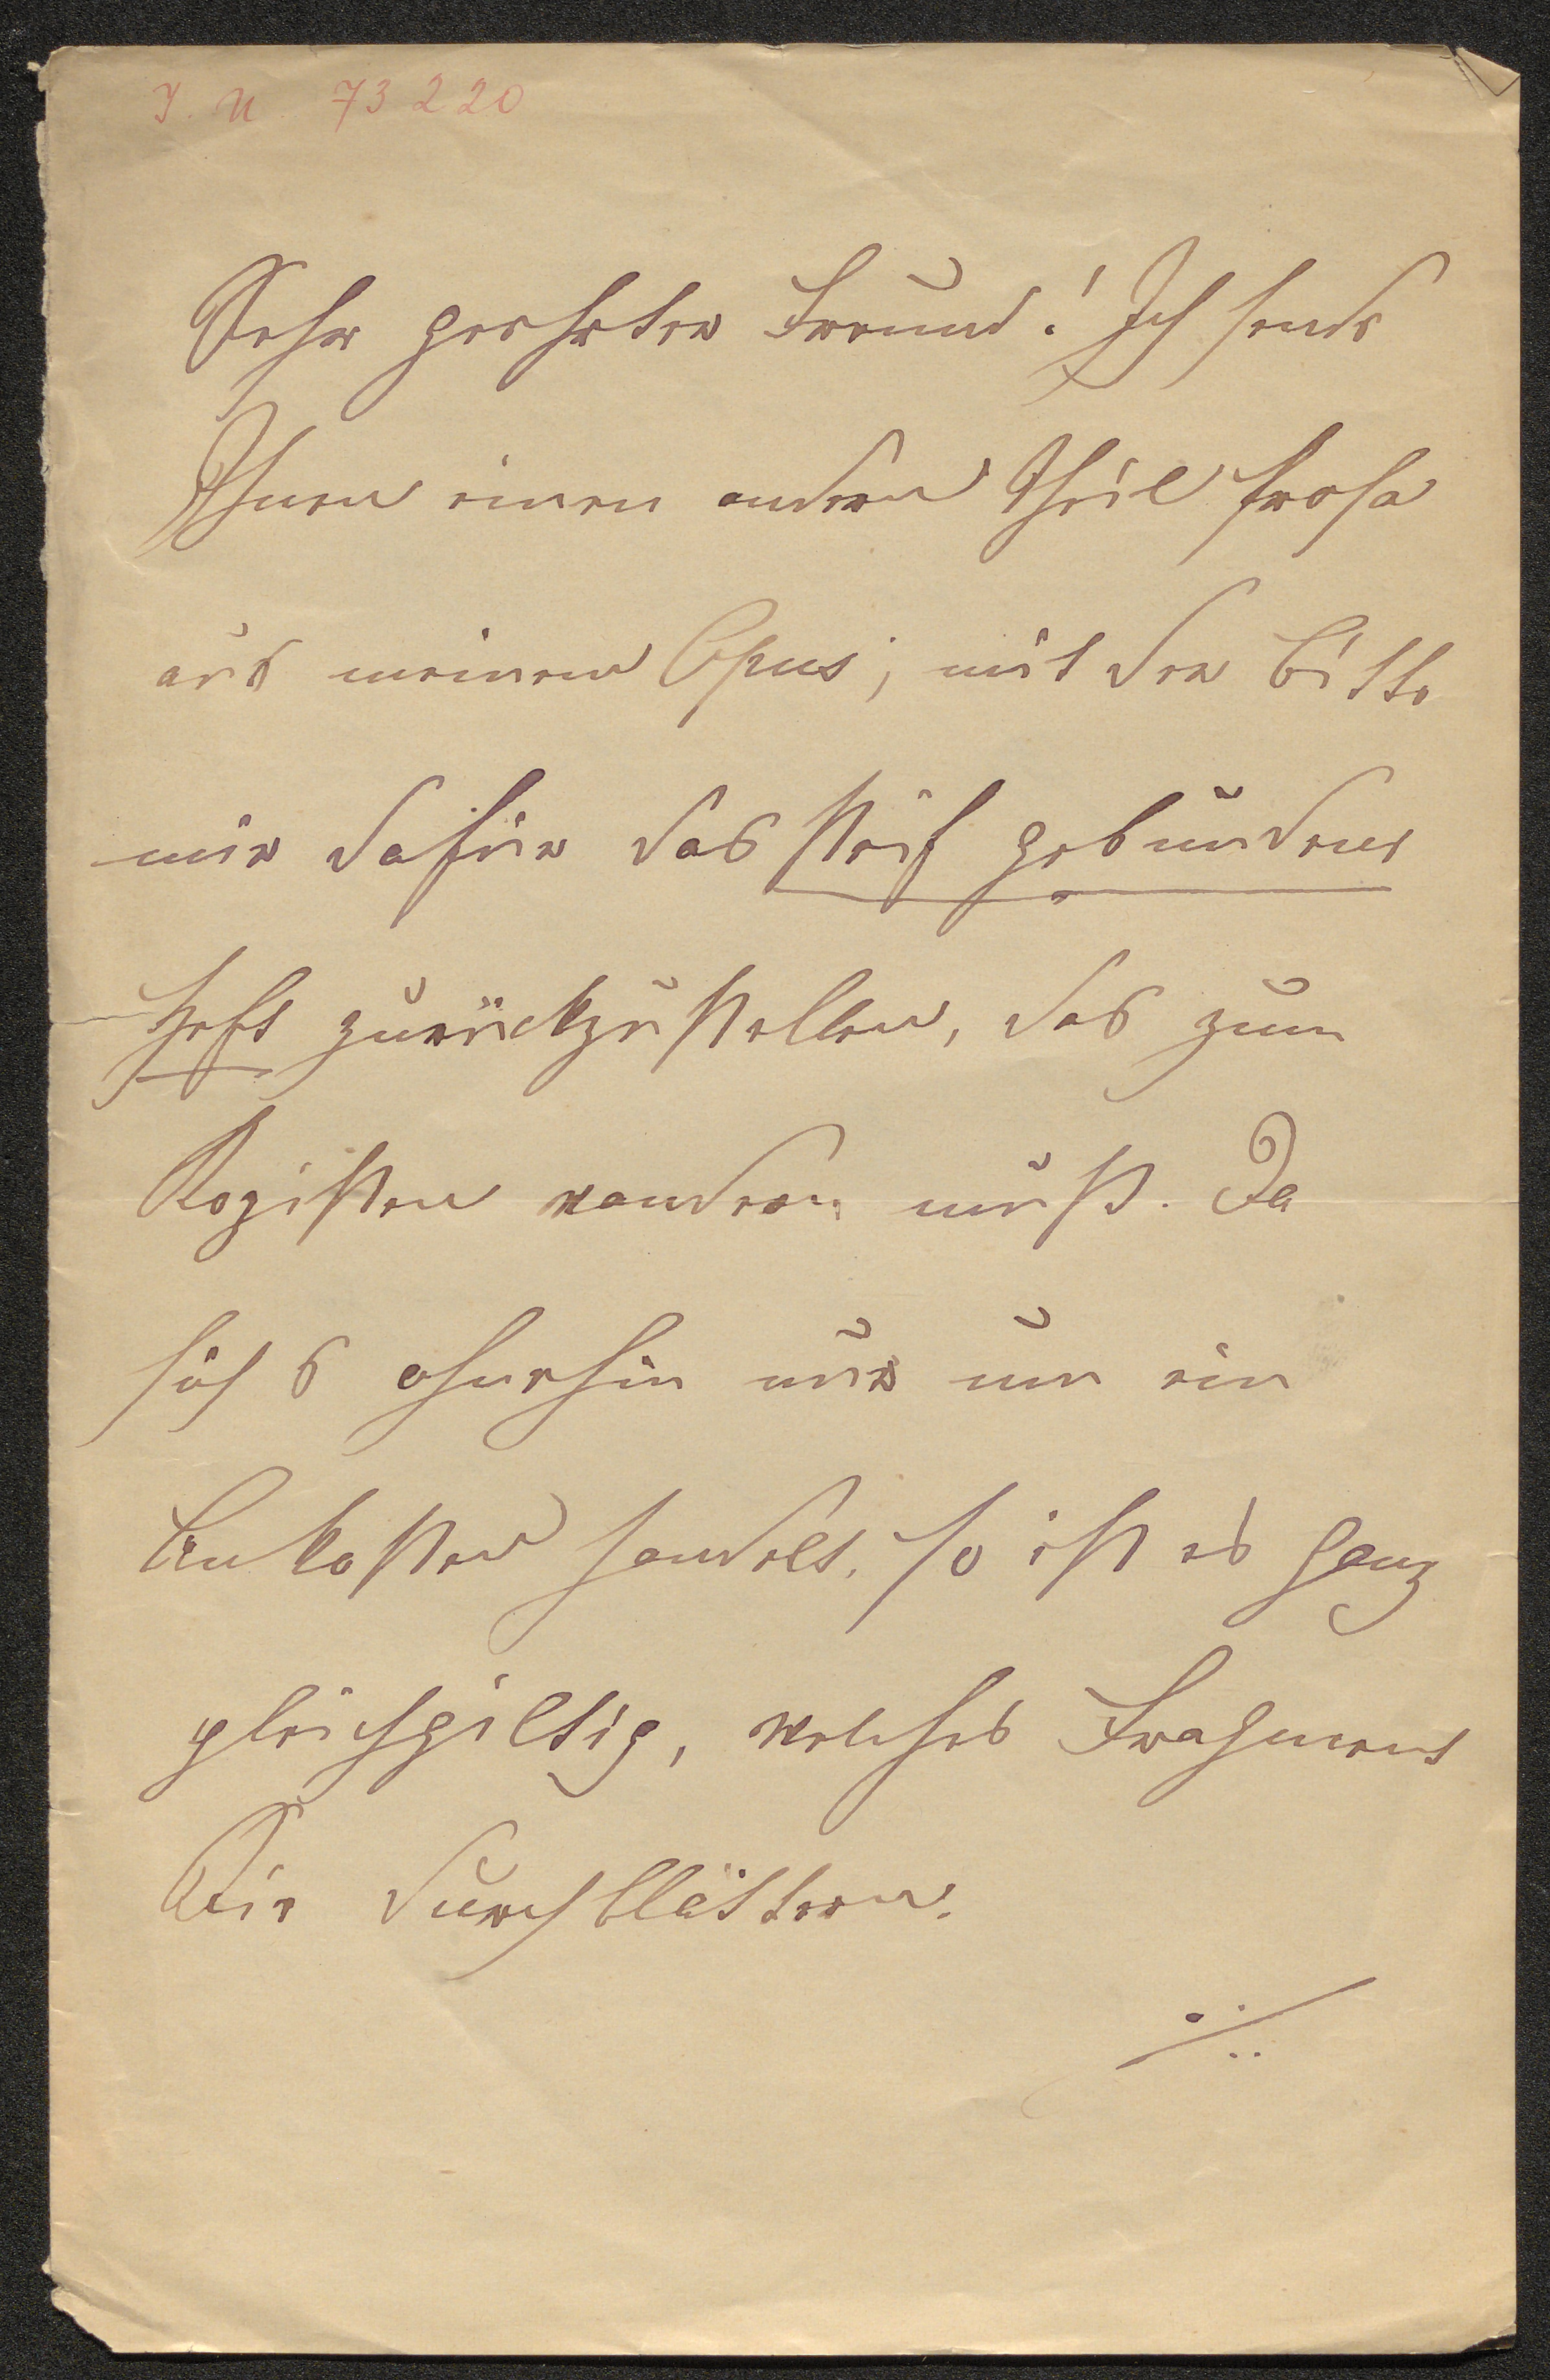 I. N. 73220
Sehr geehrter Freund! Ich sende
Ihnen einen andern Theil Prosa
aus meinem Opus, mit der Bitte
mir dafür das steif gebundene
Heft zurückzustellen, das zum
Kopisten wandern muß. Da
sich's ohnehin nur um ein
Ankosten handelt, so ist es ganz
gleichgiltig, welches Fragment
Sie durchblättern.